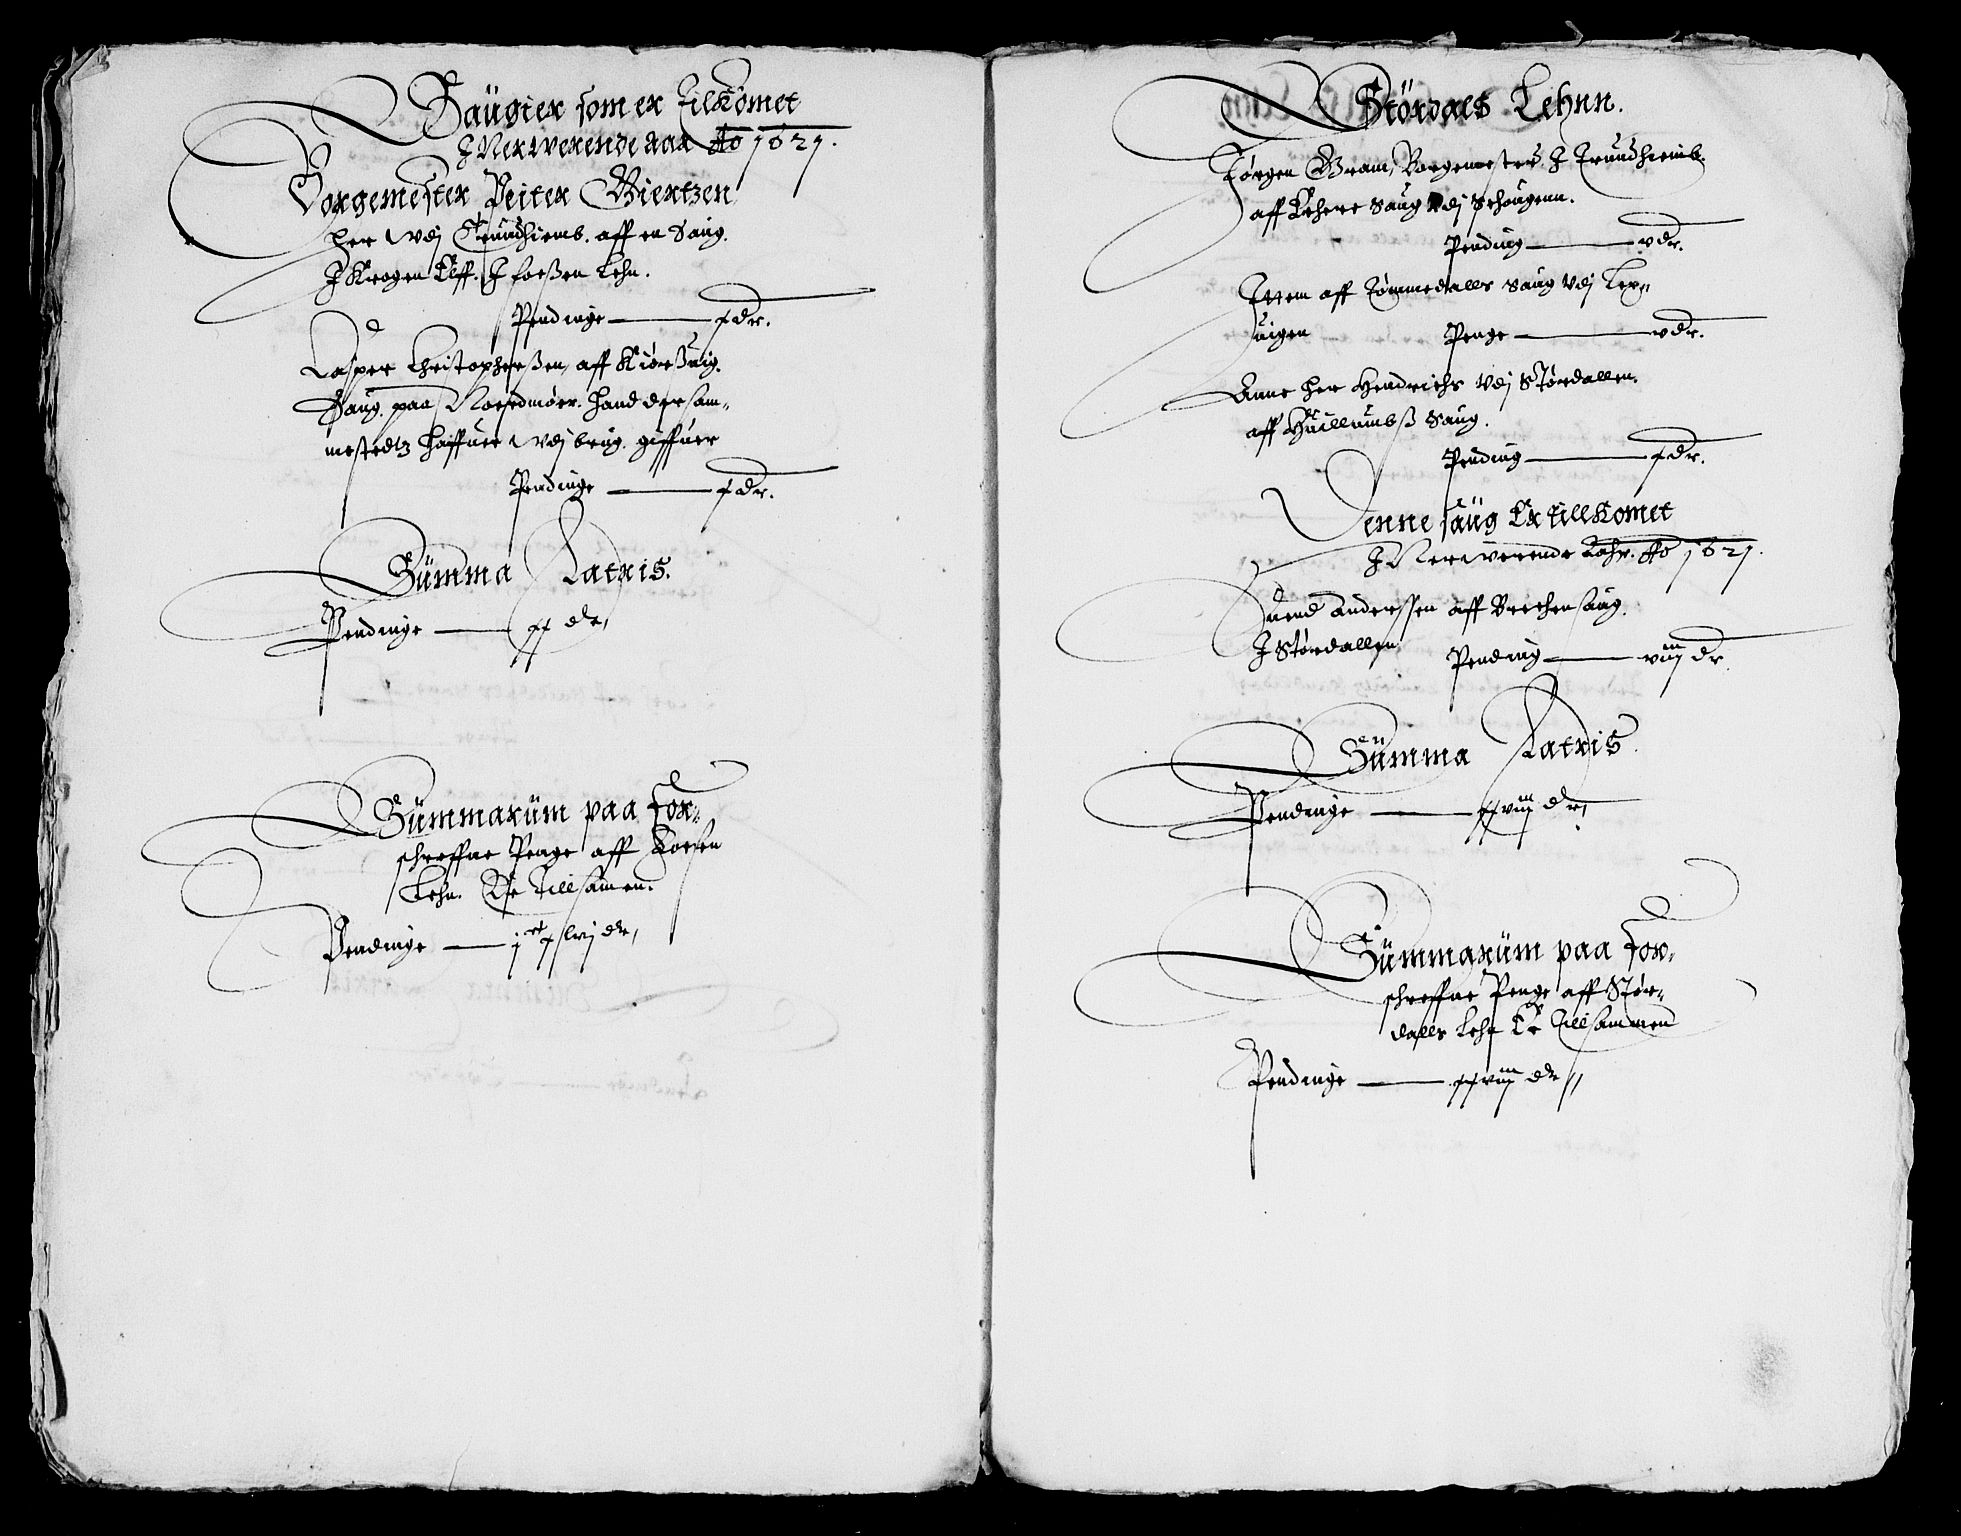 Saügier som er tilkomet
J Nerwerende aar Ao 1621.
Borgemester Peiter Giertzen
her wdj Trundhiemb. aff en Saug.
J Krogen Elff. J Foeßen Lehn.
Pendinge — x dr.
Casper Christopherßen, aff Kiørßuig
Saug. paa Noerdmøer. hand der sam-
mestedtz haffuer wdj brug. giffuer
Pendinge — x dr.
Sümma Latris.
Pendinge — xx dr,
Sümmarüm paa For-
schreffne Penge aff Foesen
Lehn. Er Tillsamen.
Pendinge — jct xlvj dr,
Stördals Lehnn.
Jørgen Gram, Borgemester J Trundhiemb.
aff Lehers Saug Vdj Schougenn.
Pending — v dr.
Jttem aff Tømmerdalls Saug Vdj Lex-
uigen Penge — v dr.
Anne her Hendrichs Vdj Størdallen.
aff Huellumbß Saug.
Pending — x dr.
Denne saüg Er tillkomet
J Nerwerende Aahr. Ao 1621.
Suend Anderssen aff Brechensaug.
J Størdallen Pending — viij dr
Sümma Latris
Pendinge — xxviij dr,
Sümmarüm paa For-
schreffne Penge aff Stør-
dalls Lehn Er Tillsammen
Pendinge — xxviij dr,